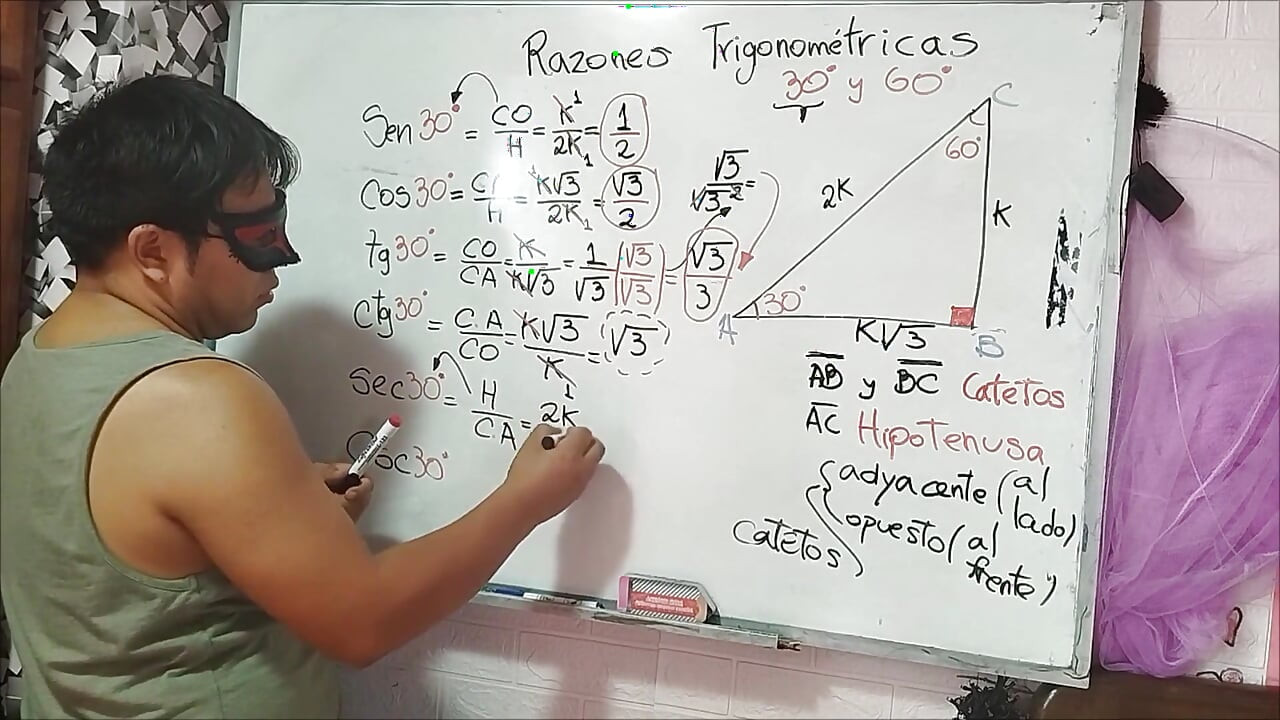 Razones Trigonométricas
30° y 60°
Sen 30° = CO/H = K/2K = 1/2
1
1
Cos 30° = CA/H = K√3/2K = √3/2
1
tg 30° = CO/CA = K/K√3 = 1/√3 (√3/√3) = √3/3
√3/√3² =
Ctg 30° = C.A/CO = K√3/K = √3
1
Sec 30° = H/C.A = 2K
Csc 30°
C
60°
2K
K
30°
A
K√3
B
AB y BC Catetos
AC Hipotenusa
Catetos
adyacente (al lado)
opuesto (al frente)